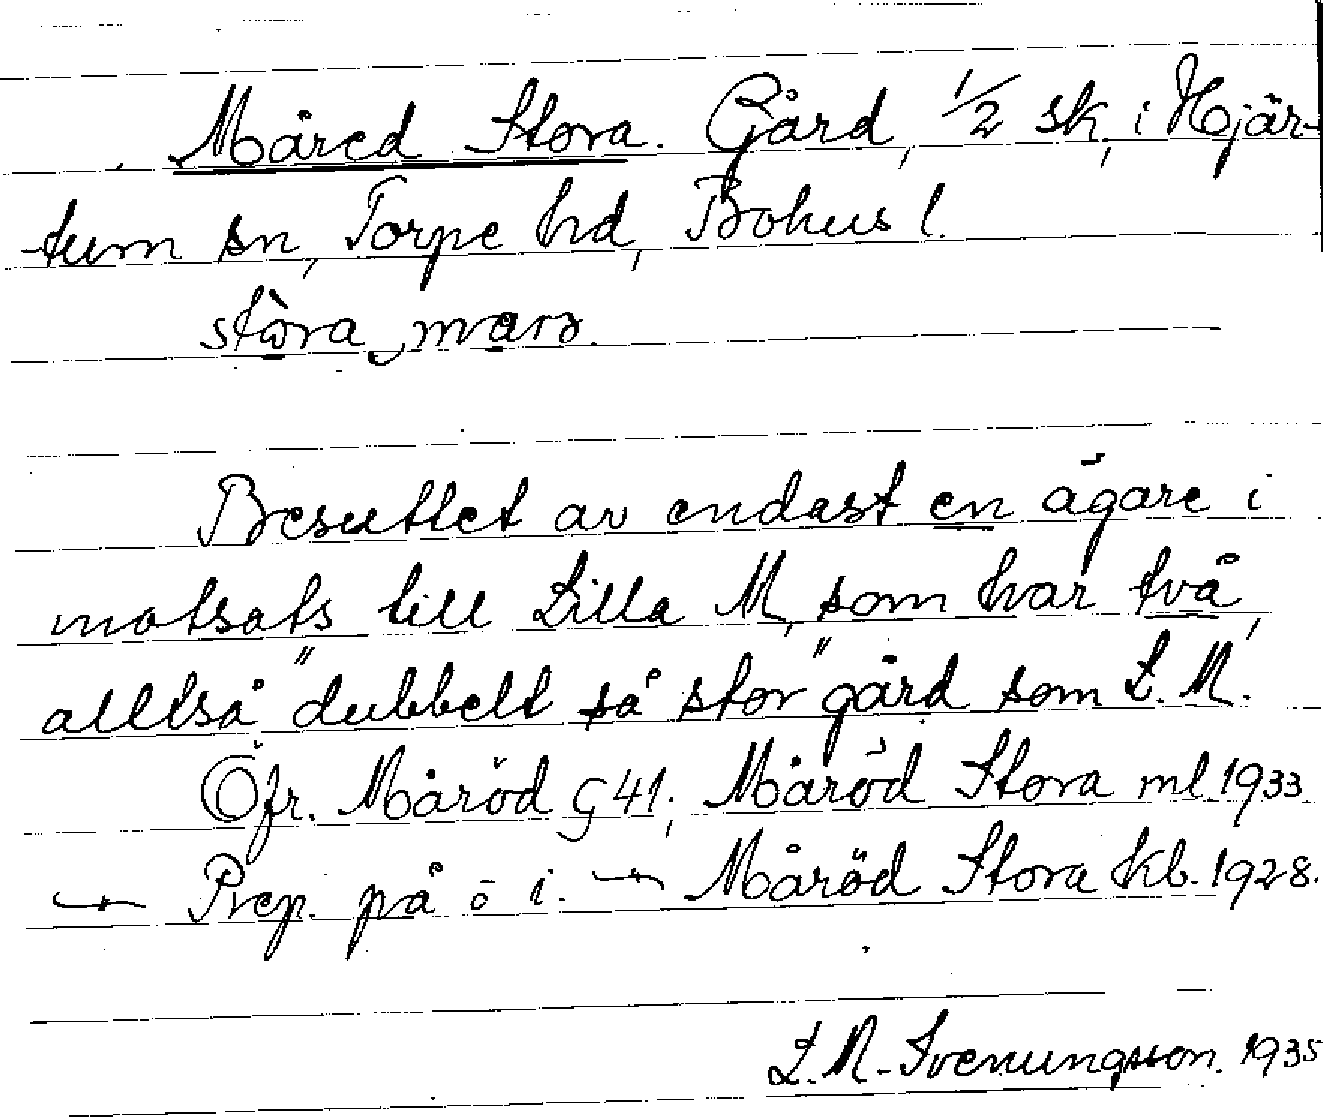 Måred Stora. Gård, 1/2 sk, i Hjär-
tum sn, Torpe hd, Bohus l.
stòra
Besuttet av endast en ägare i
motsats till Lilla M, som har två,
alltså "dubbelt så stor" gård som L. M.
Öfr. Måröd G 41; Måröd Stora ml. 1933
Prep. på o i. Måröd Stora kb. 1928.
L. M. Svenungsson. 1935